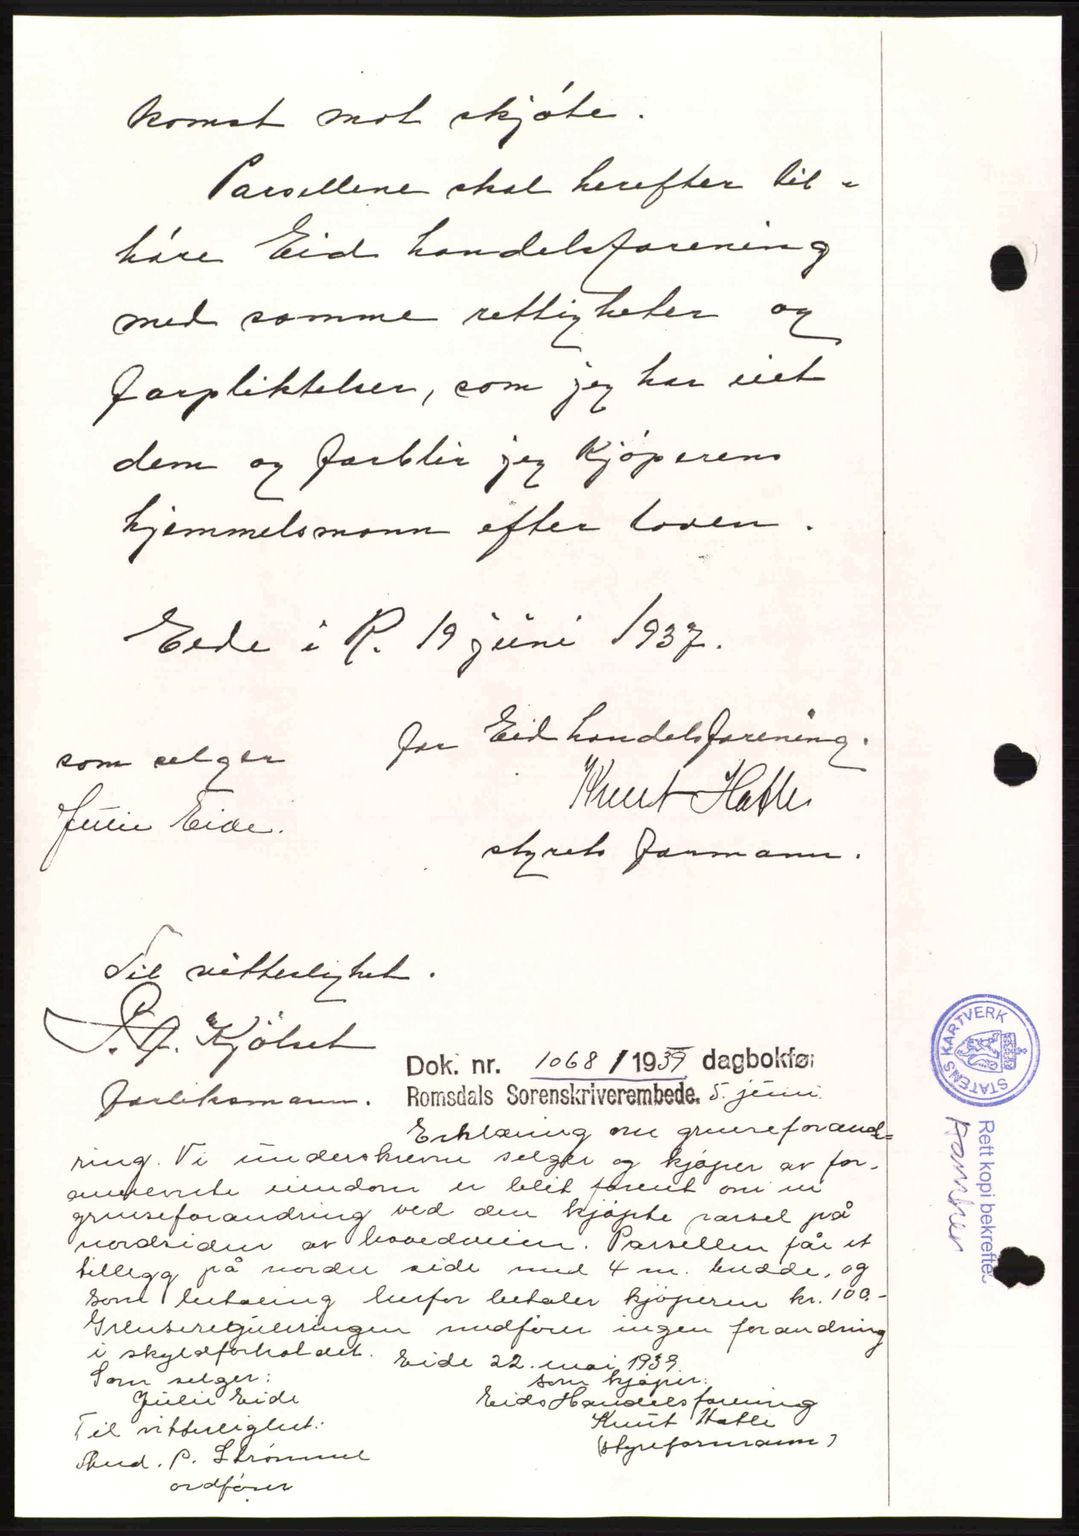 komst mot skjóte.
Parsellene skal herefter til-
hóre Eid handelsforening
med samme rettigheter og
forpliktelser, som jeg har eiet
dem og forblir jeg kjóperens
hjemmelsmann efter loven.
Eide i R. 19 juni 1937.
for Eid handelsforening.
som selger
Knut Hatle
Julie Eide.
styrets formann.
Til vitterlighet.
P. A. Kjölset
forliksmann.
Dok. nr. 1068 / 1939 dagbokfør
Romsdals Sorenskriverembede. 5. juni.
Erklæring om grenseforand=
ring. Vi underskrevne selger og kjøper av for-
annevnte eiendom er blit forent om en
grenseforandring ved den kjøpte parsel på
nordsiden av hovedveien. Parsellen får et
tillegg på nordre side med 4 m. bredde, og
som betaling herfor betaler kjøperen kr. 100.-
Grensereguleringen medfører ingen forandring
i skyldforholdet. Eide 22. mai 1939.
Som selger:
som kjøper:
Julie Eide
Eids Handelsforening
Til vitterlighet:
Knut Hatle
(styreformann)
P. Strømmel
ordfører
STATENS KARTVERK
Rett kopi bekreftes